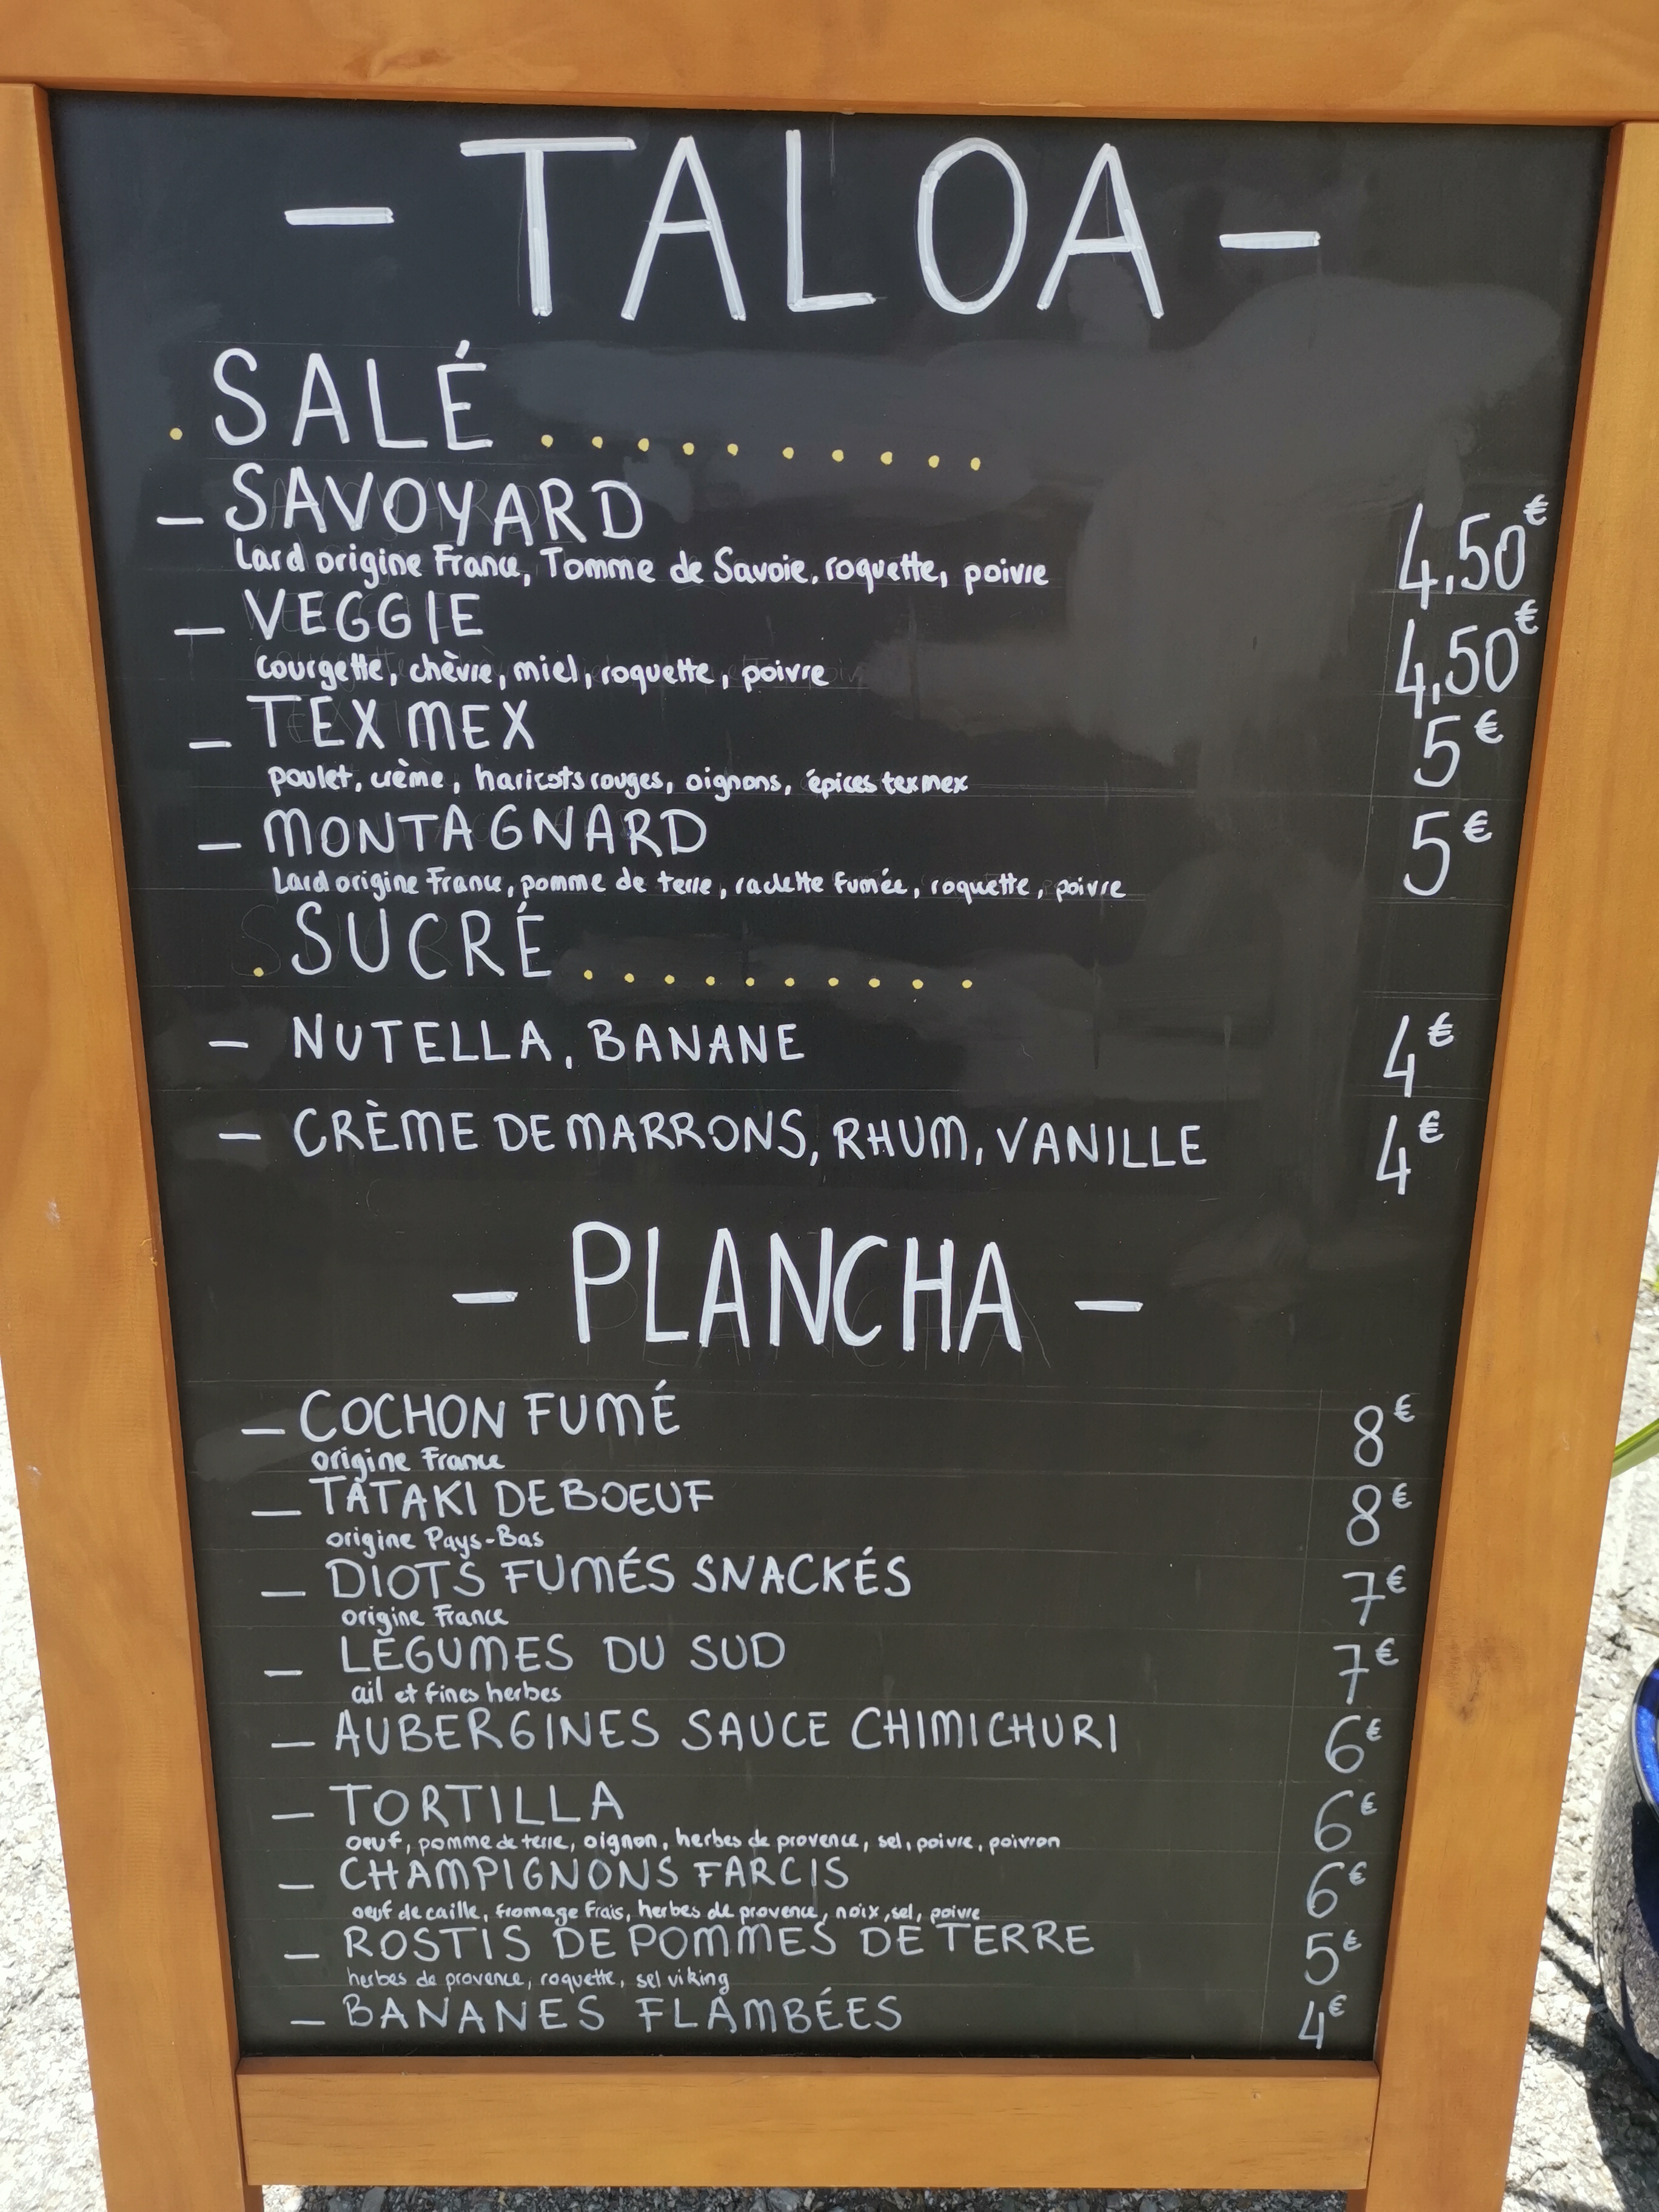 - TALOA -
. SALÉ ..........
- SAVOYARD 4,50€
Lard origine France, Tomme de Savoie, roquette, poivre
- VEGGIE 4,50€
courgette, chèvre, miel, roquette, poivre
- TEX MEX 5€
poulet, crème, haricots rouges, oignons, épices texmex
- MONTAGNARD 5€
Lard origine France, pomme de terre, raclette fumée, roquette, poivre
. SUCRÉ ..........
- NUTELLA, BANANE 4€
- CRÈME DE MARRONS, RHUM, VANILLE 4€
- PLANCHA -
- COCHON FUMÉ 8€
origine France
- TATAKI DE BOEUF 8€
origine Pays-Bas
- DIOTS FUMÉS SNACKÉS 7€
origine France
- LÉGUMES DU SUD 7€
ail et fines herbes
- AUBERGINES SAUCE CHIMICHURI 6€
- TORTILLA 6€
oeuf, pomme de terre, oignon, herbes de provence, sel, poivre, poivron
- CHAMPIGNONS FARCIS 6€
oeuf de caille, fromage frais, herbes de provence, noix, sel, poivre
- ROSTIS DE POMMES DE TERRE 5€
herbes de provence, roquette, sel viking
- BANANES FLAMBÉES 4€